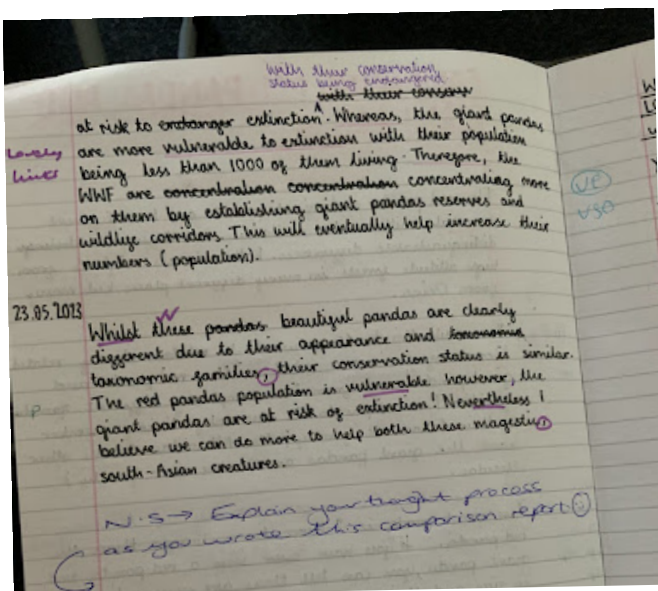 with their conservation
status being endangered
with their conserv
at risk to endanger extinction. Whereas, the giant pandas
Lovely
links
are more vulnerable to extinction with their population
being less than 1000 of them living. Therefore, the
WWF are concentration concentration concentrating more
on them by establishing giant pandas reserves and
wildlife corridors. This will eventually help increase their
numbers (population).
VF
VSO
23.05.2023
Whilst these pandas beautiful pandas are clearly
different due to their appearance and taxonomic
taxonomic families, their conservation status is similar.
The red pandas population is vulnerable however, the
giant pandas are at risk of extinction! Nevertheless I
believe we can do more to help both these magestic
south-Asian creatures.
P
N.S → Explain your thought process
as you wrote this comparison report